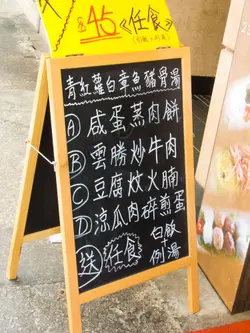 $45 任食
青紅蘿白章魚豬骨湯
Ⓐ 咸蛋蒸肉餅
Ⓑ 雲勝炒牛肉
Ⓒ 豆腐炆火腩
Ⓓ 涼瓜肉碎煎蛋
送 任食 白飯+例湯